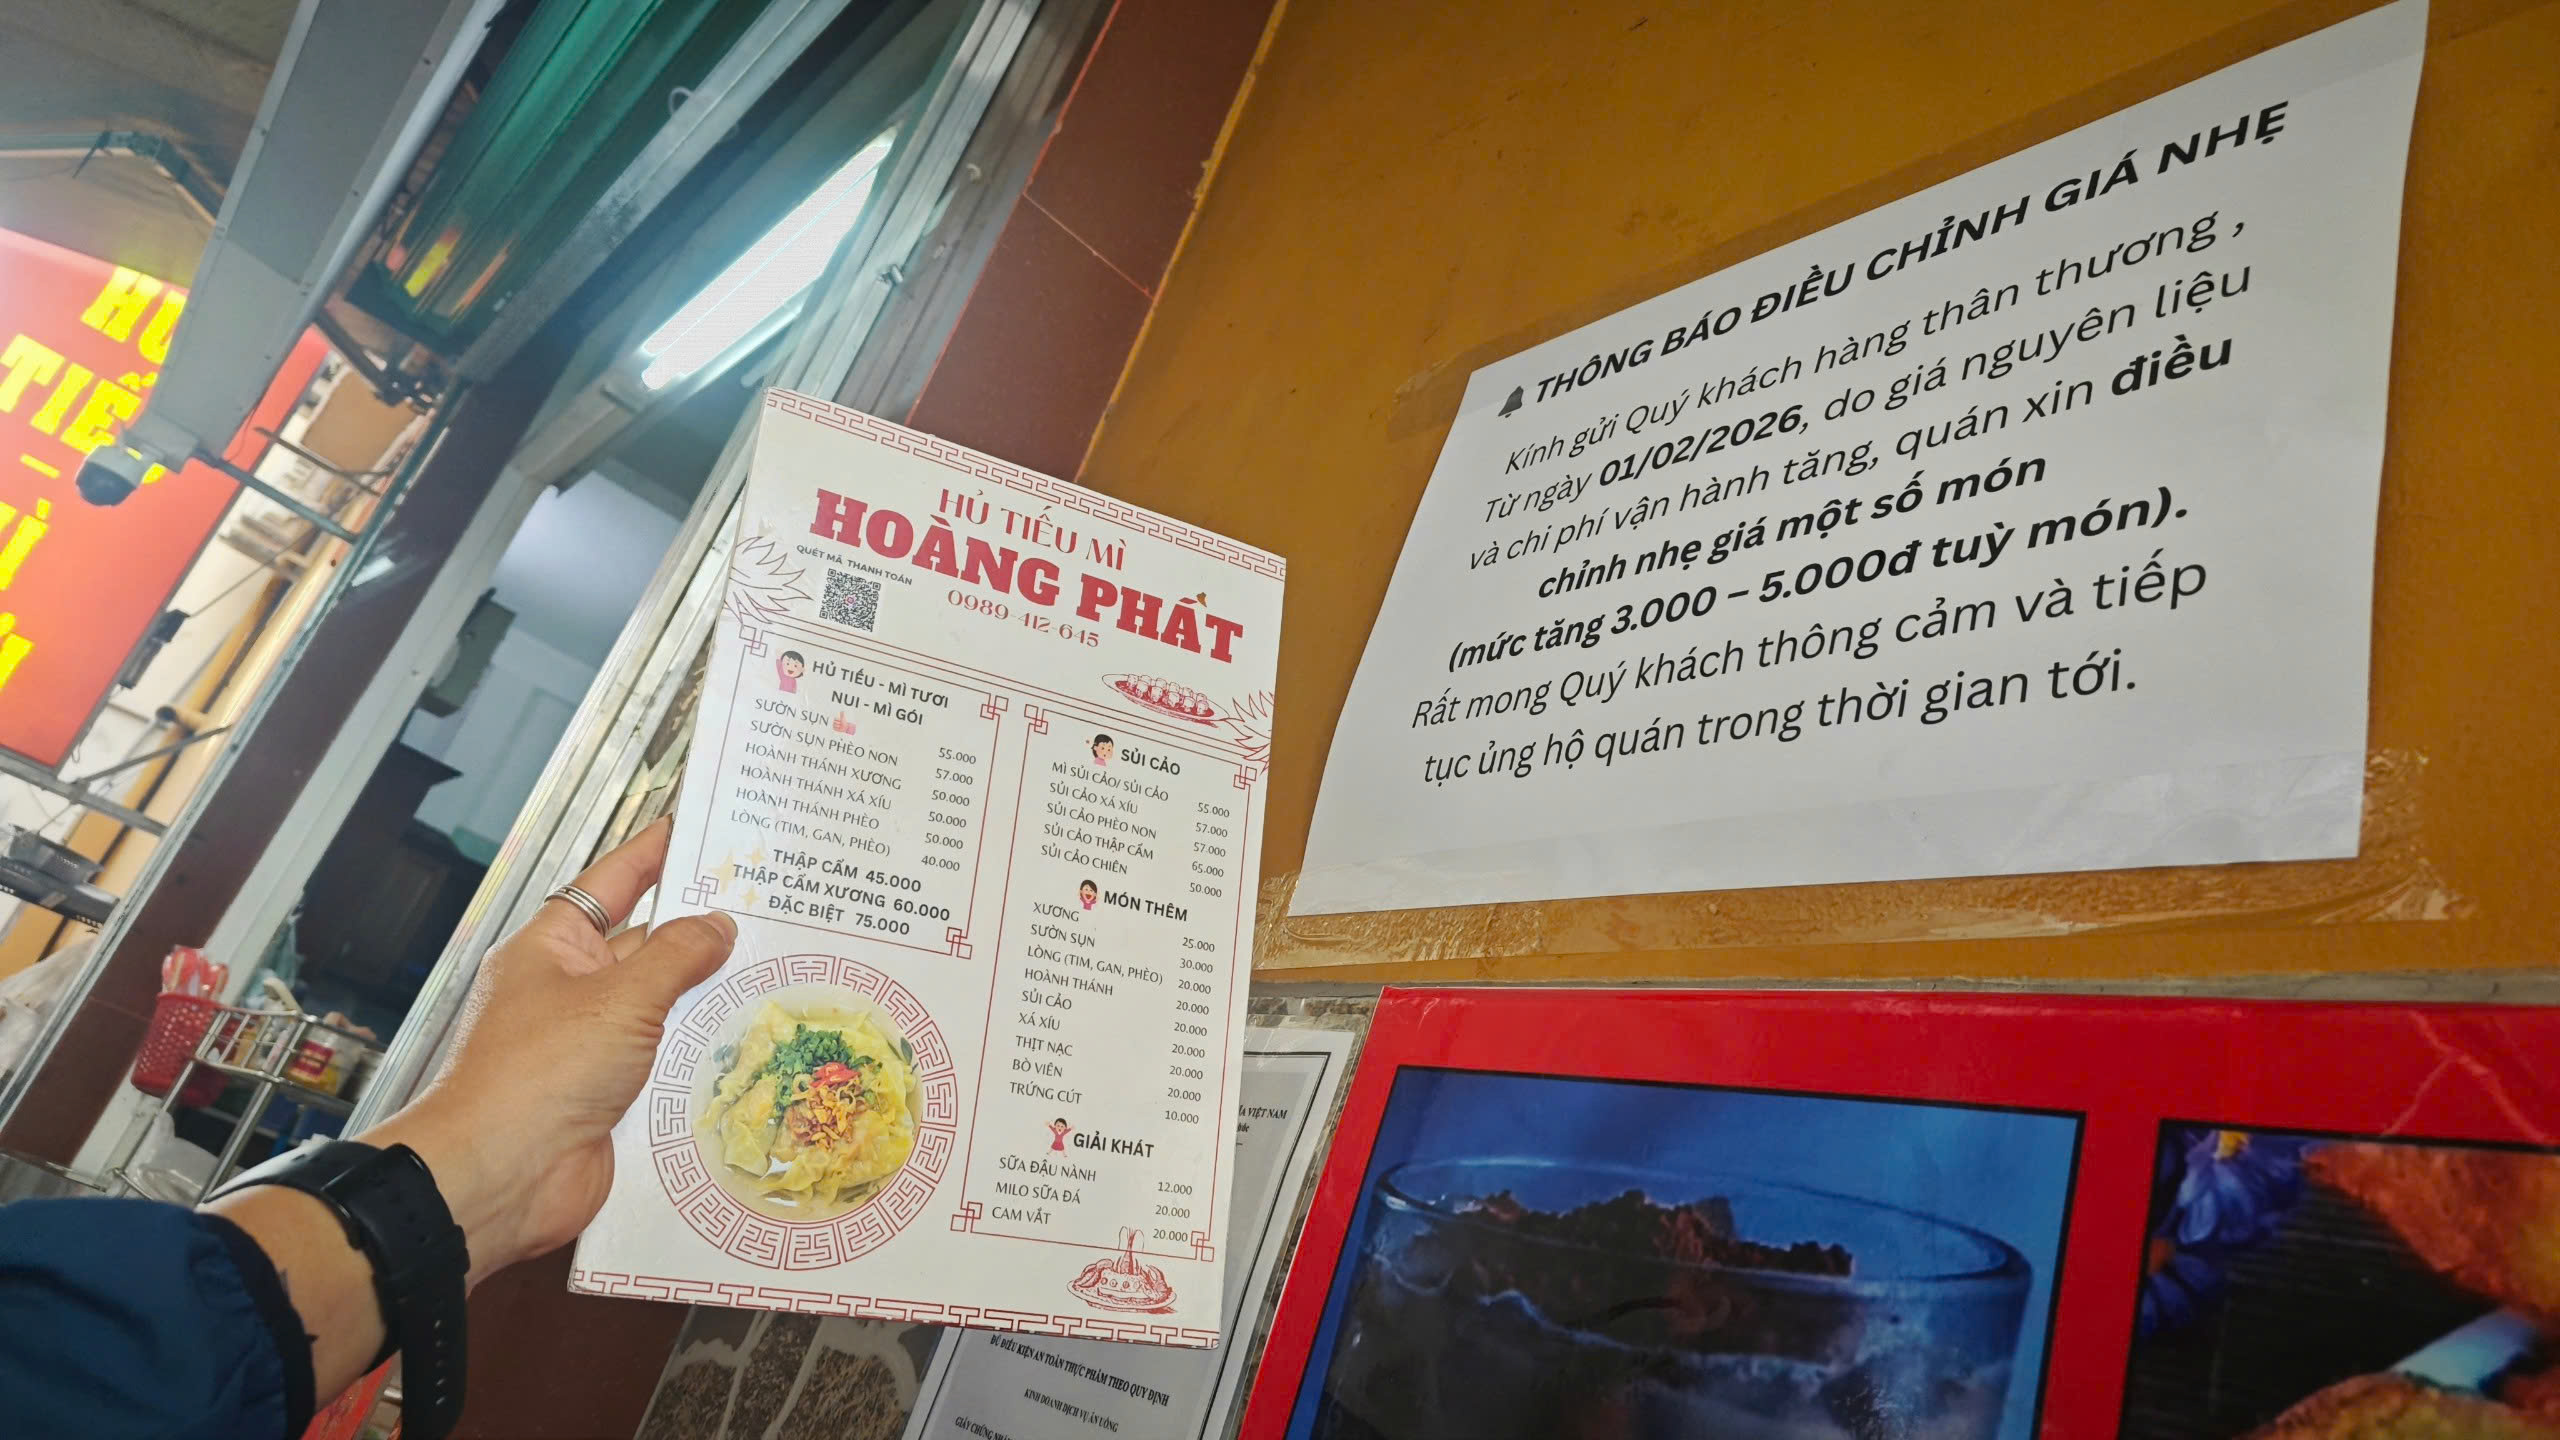 HỦ TIẾU MÌ
HOÀNG PHÁT
QUÉT MÃ THANH TOÁN
0989-412-645
HỦ TIẾU - MÌ TƯƠI
NUI - MÌ GÓI
SƯỜN SỤN 55.000
SƯỜN SỤN PHÈO NON 57.000
HOÀNH THÁNH XƯƠNG 50.000
HOÀNH THÁNH XÁ XÍU 50.000
HOÀNH THÁNH PHÈO 50.000
LÒNG (TIM, GAN, PHÈO) 40.000
THẬP CẨM 45.000
THẬP CẨM XƯƠNG 60.000
ĐẶC BIỆT 75.000
SỦI CẢO
MÌ SỦI CẢO/ SỦI CẢO 55.000
SỦI CẢO XÁ XÍU 57.000
SỦI CẢO PHÈO NON 57.000
SỦI CẢO THẬP CẨM 65.000
SỦI CẢO CHIÊN 50.000
MÓN THÊM
XƯƠNG 25.000
SƯỜN SỤN 30.000
LÒNG (TIM, GAN, PHÈO) 20.000
HOÀNH THÁNH 20.000
SỦI CẢO 20.000
XÁ XÍU 20.000
THỊT NẠC 20.000
BÒ VIÊN 20.000
TRỨNG CÚT 10.000
GIẢI KHÁT
SỮA ĐẬU NÀNH 12.000
MILO SỮA ĐÁ 20.000
CAM VẮT 20.000
THÔNG BÁO ĐIỀU CHỈNH GIÁ NHẸ
Kính gửi Quý khách hàng thân thương ,
Từ ngày 01/02/2026, do giá nguyên liệu
và chi phí vận hành tăng, quán xin điều
chỉnh nhẹ giá một số món
(mức tăng 3.000 – 5.000đ tuỳ món).
Rất mong Quý khách thông cảm và tiếp
tục ủng hộ quán trong thời gian tới.
VIỆT NAM
ĐỦ ĐIỀU KIỆN AN TOÀN THỰC PHẨM THEO QUY ĐỊNH
KINH DOANH DỊCH VỤ ĂN UỐNG
GIẤY CHỨNG
HỦ
TIẾU
MÌ